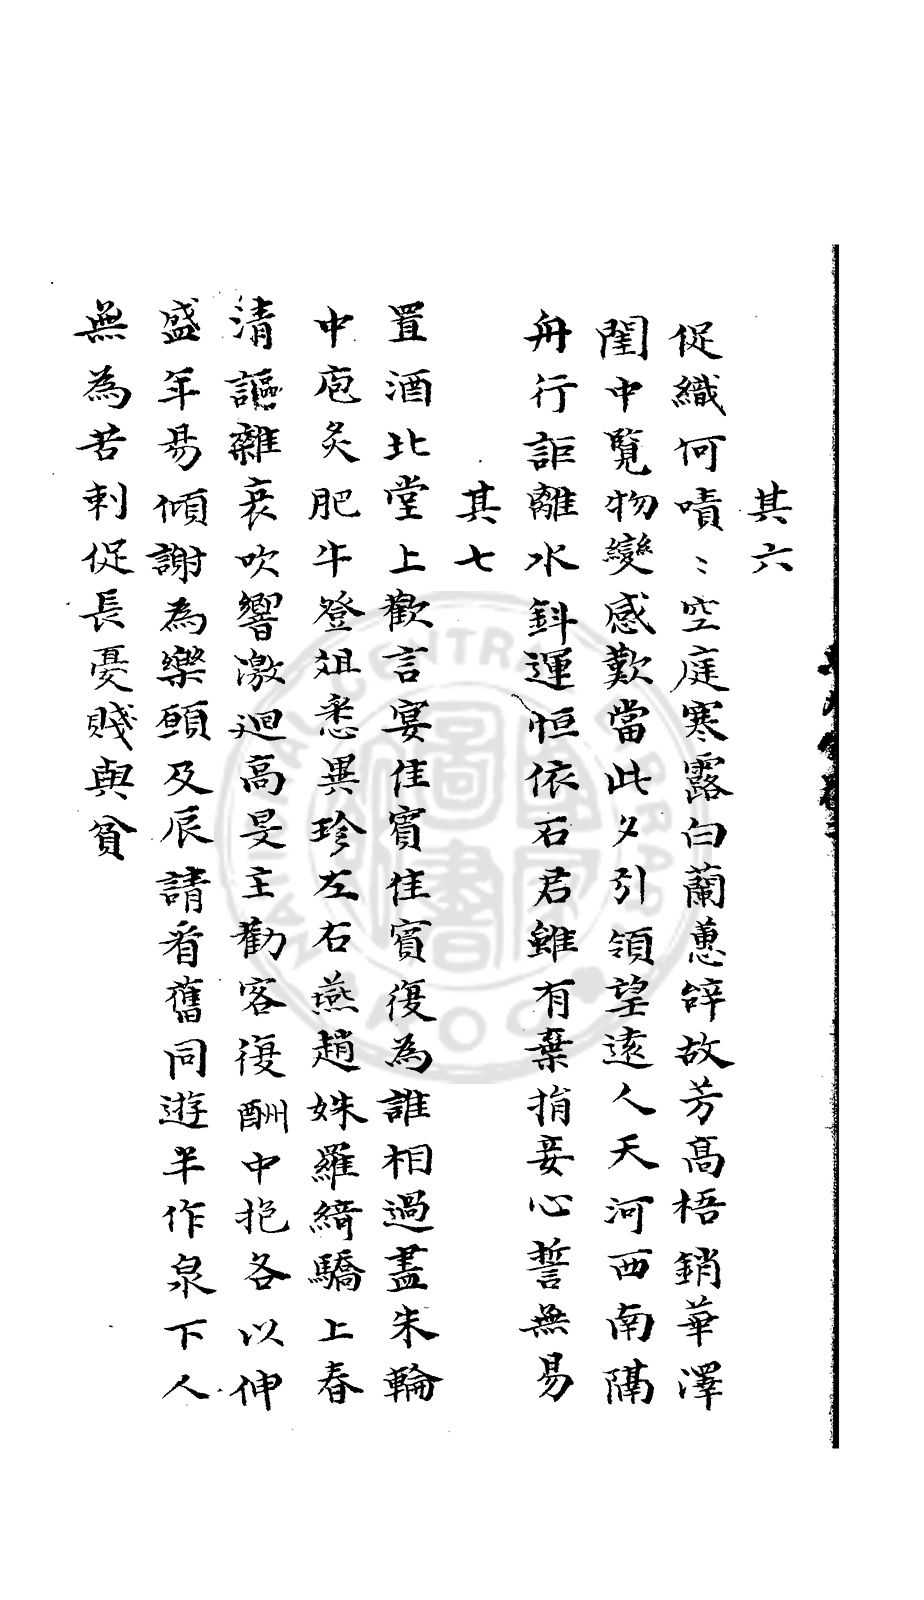 其六
促織何嘖〻空庭寒露白蘭蕙辭故芳高梧銷華澤
閨中覽物變感歎當此夕引領望遠人天河西南隔
舟行詎離水斜運恒依石君雖有棄捐妾心誓無易
其七
置酒北堂上歡言宴佳賓佳賓復為誰相過盡朱輪
中庖炙肥牛登俎悉異珍左右燕趙姝羅綺驕上春
清謳雜哀吹響激迴高旻主勸客復酬中抱各以伸
盛年易傾謝為樂願及辰請看舊同遊半作泉下人
無為苦刺促長憂賤與貧
NATIONAL CENTRAL LIBRARY